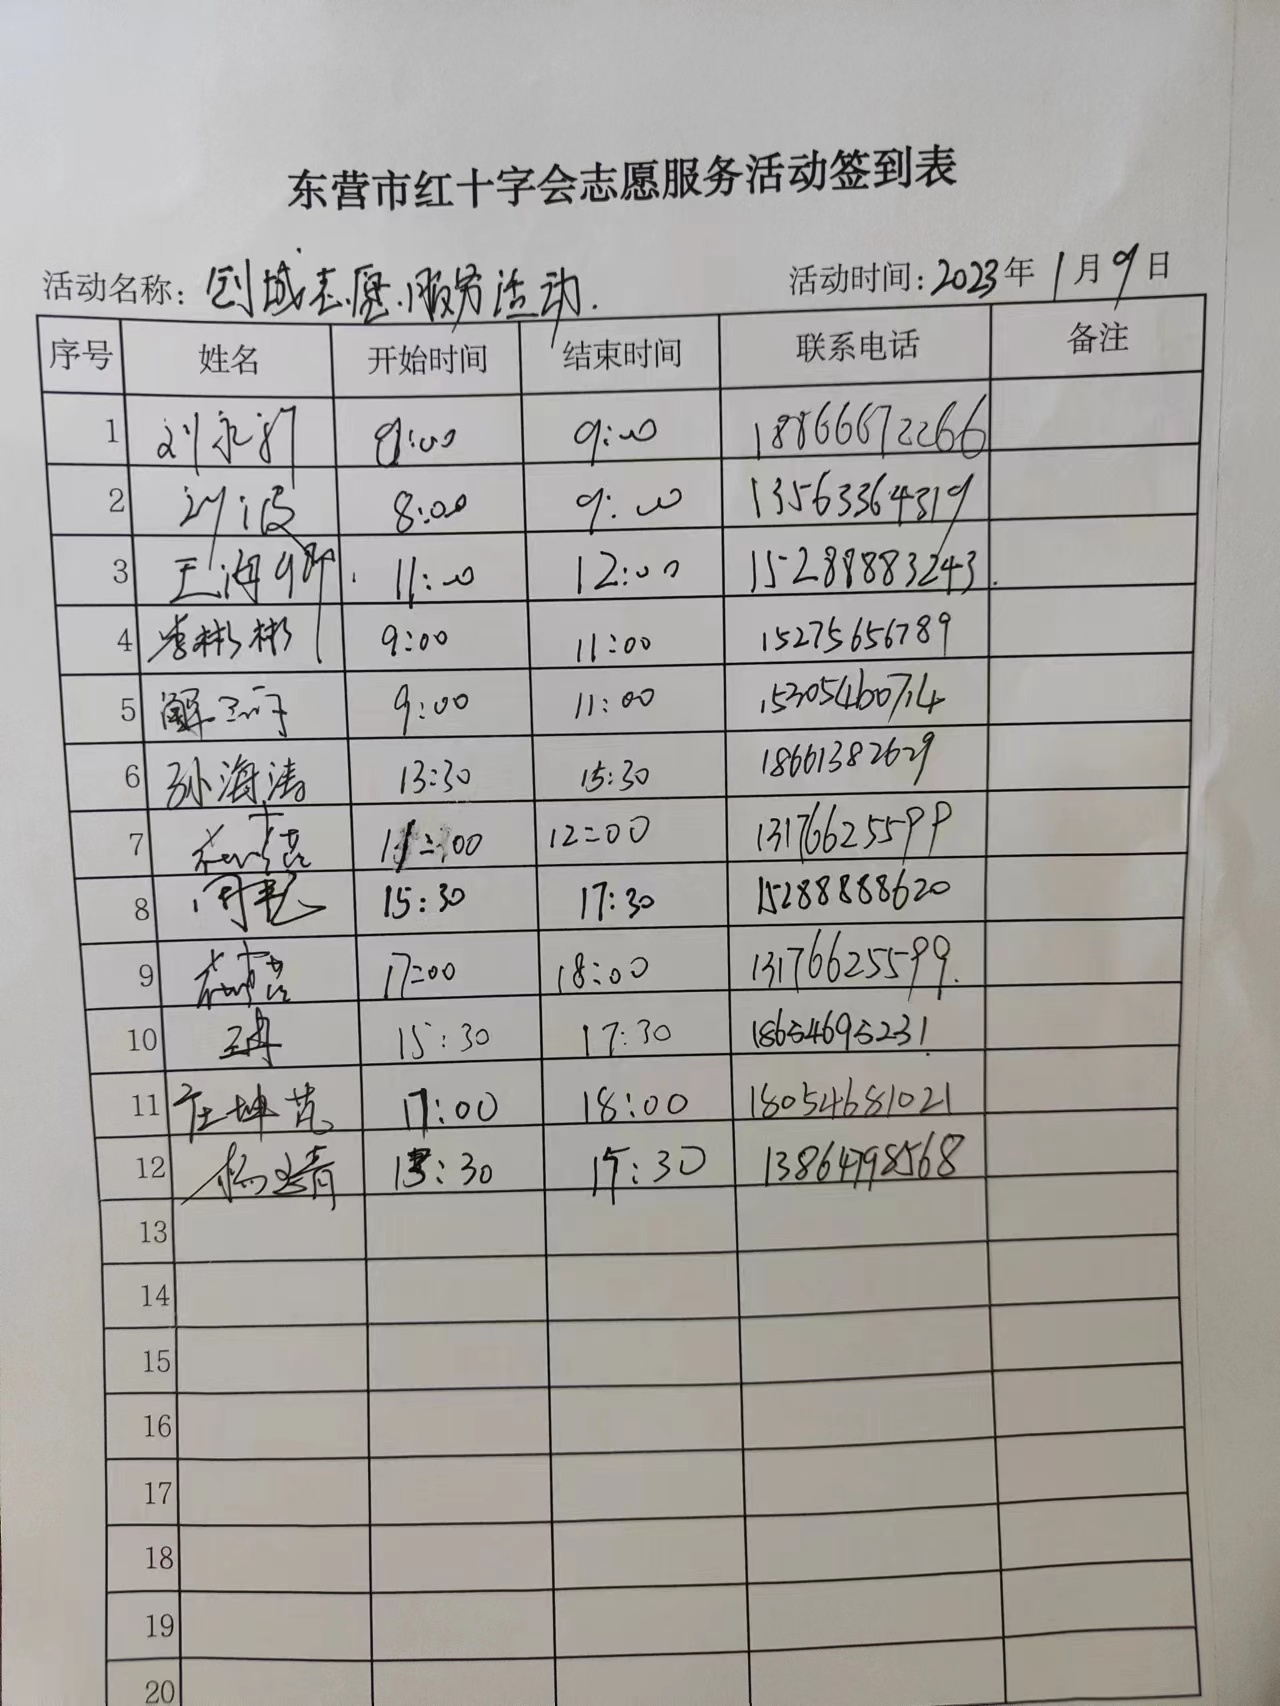 东营市红十字会志愿服务活动签到表
活动名称: 创城志愿服务活动. 活动时间: 2023年 1月 9日
序号 姓名 开始时间 结束时间 联系电话 备注
1 刘永 9:00 18866672266
2 刘波 8:00 9:00 13563364319
3 王海 11:00 12:00 15288883243
4 李彬彬 9:00 11:00 15275656789
5 解 9:00 11:00 15305460714
6 孙海涛 13:30 15:30 18661382629
7 12:00 13176625599
8 15:30 17:30 15288888620
9 17:00 18:00 13176625599
10 15:30 17:30 18654695231
11 庄坤 17:00 18:00 18054681021
12 杨 13864798568
13
14
15
16
17
18
19
20